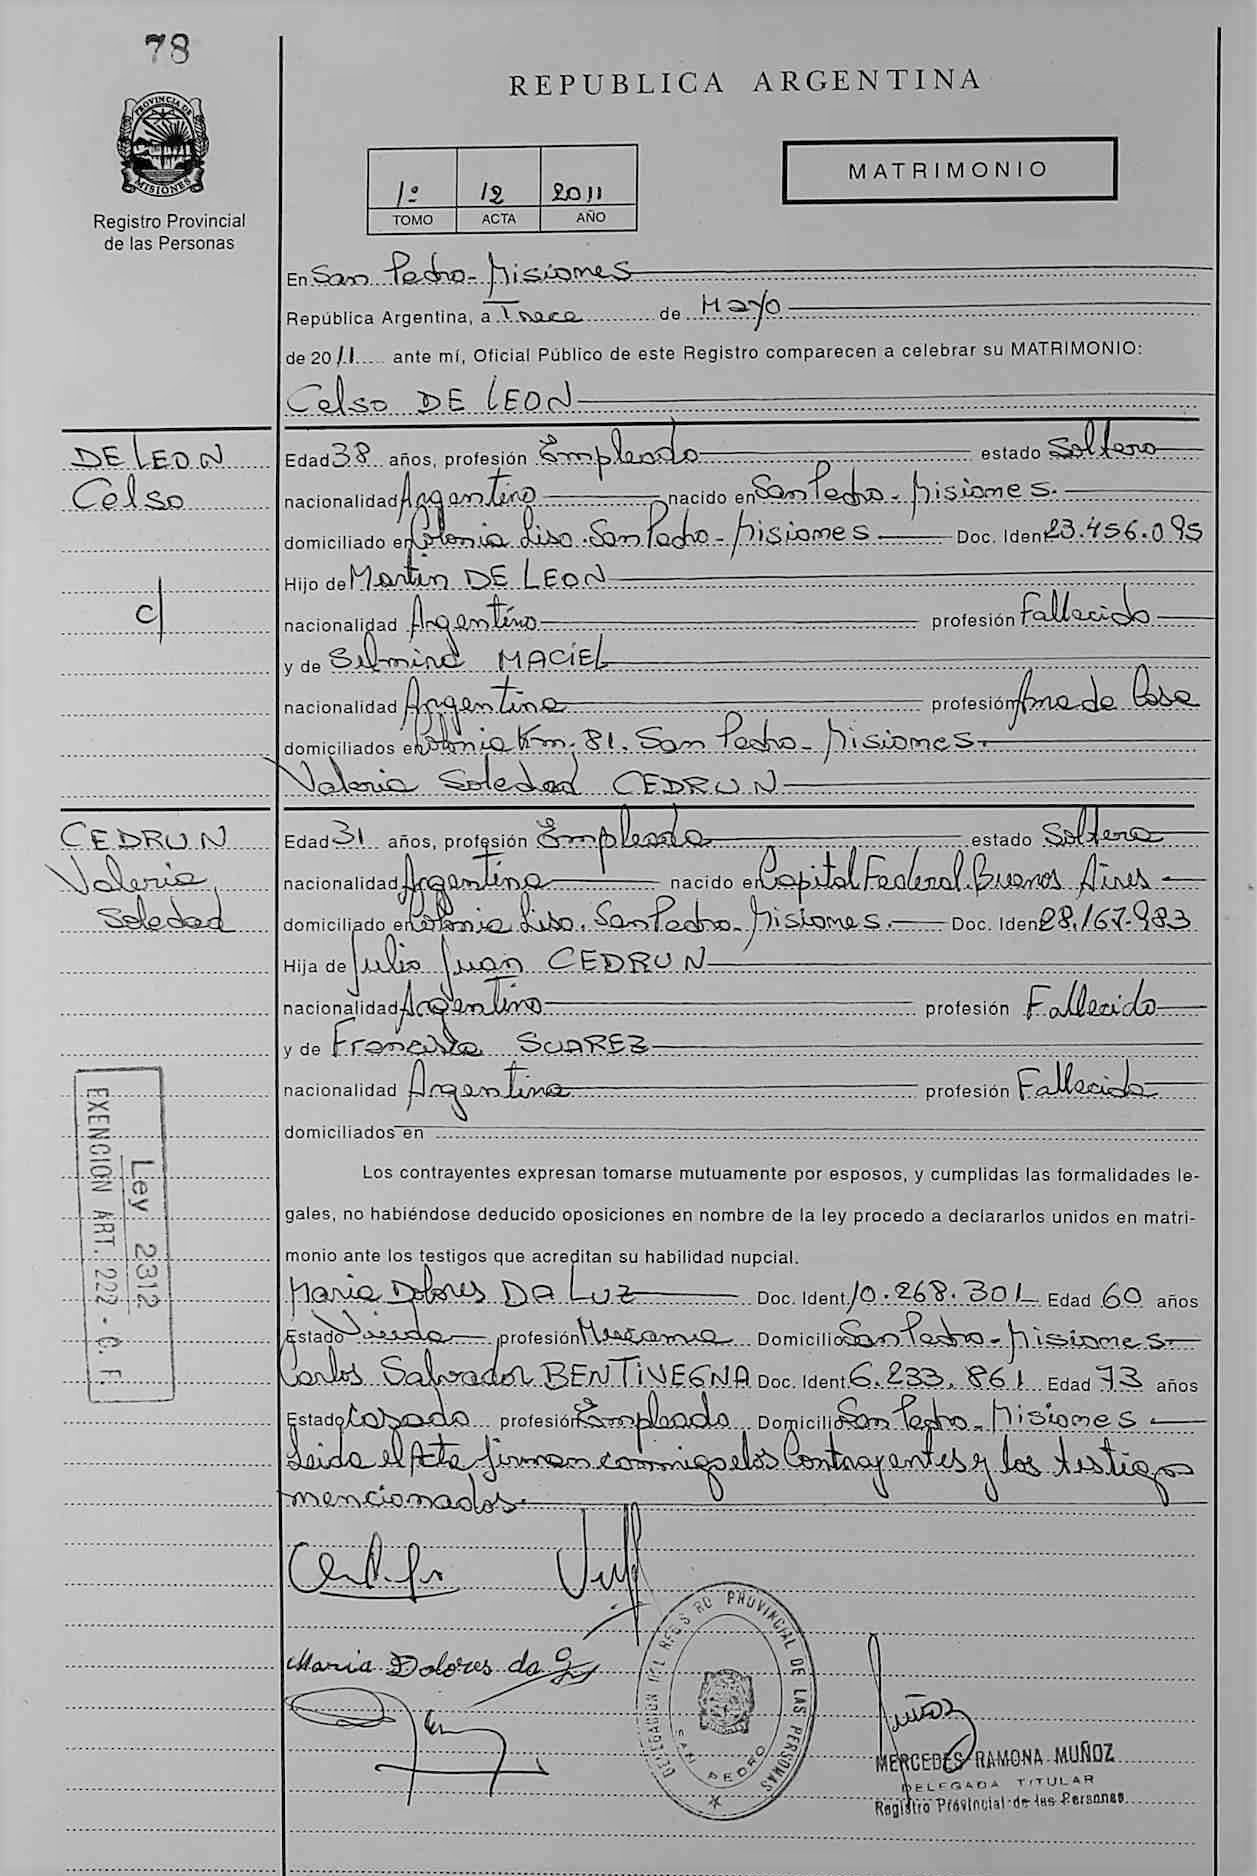 78
REPUBLICA ARGENTINA
PROVINCIA DE
MISIONES
Registro Provincial
de las Personas
1º 12 2011
TOMO ACTA AÑO
MATRIMONIO
En San Pedro - Misiones
República Argentina, a Trece de Mayo
de 2011 ante mí, Oficial Público de este Registro comparecen a celebrar su MATRIMONIO:
Celso DE LEON
DE LEON
Celso
c/
Edad 38 años, profesión Empleado estado Soltero
nacionalidad Argentino nacido en San Pedro - Misiones.
domiciliado en Colonia Liso. San Pedro - Misiones Doc. Iden 23.456.095
Hijo de Martin DE LEON
nacionalidad Argentino profesión Fallecido
y de Selmira MACIEL
nacionalidad Argentina profesión Ama de Casa
domiciliados en Colonia Km. 81. San Pedro - Misiones.
Valeria Soledad CEDRUN
CEDRUN
Valeria
Soledad
Edad 31 años, profesión Empleada estado Soltera
nacionalidad Argentina nacido en Capital Federal. Buenos Aires
domiciliado en Colonia Liso. San Pedro - Misiones. Doc. Iden 28.167.983
Hija de Julio Juan CEDRUN
nacionalidad Argentino profesión Fallecido
y de Francisca SUAREZ
nacionalidad Argentina profesión Fallecida
domiciliados en
Ley 2312
EXENCION ART. 222 - C. F.
Los contrayentes expresan tomarse mutuamente por esposos, y cumplidas las formalidades le-
gales, no habiéndose deducido oposiciones en nombre de la ley procedo a declararlos unidos en matri-
monio ante los testigos que acreditan su habilidad nupcial.
Maria Dolores DA LUZ Doc. Ident. 10.268.301 Edad 60 años
Estado Viuda profesión Domicilio San Pedro - Misiones
Carlos Salvador BENTIVEGNA Doc. Ident. 6.233.861 Edad 73 años
Estado Casado profesión Empleado Domicilio San Pedro - Misiones
Leida el Acta firman conmigo los Contrayentes y los testigos
mencionados.
Maria Dolores da
DELEGACION DEL REGISTRO PROVINCIAL DE LAS PERSONAS
SAN PEDRO
Muñoz
MERCEDES RAMONA MUÑOZ
DELEGADA TITULAR
Registro Provincial de las Personas